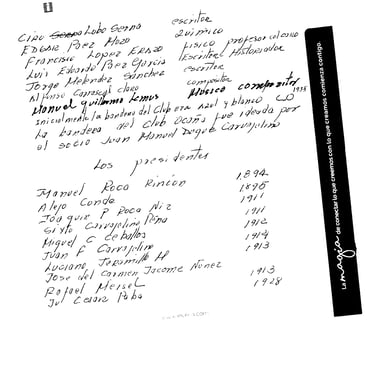 Ciro Lobo Serna escritor
Eduse Páez Mozo Químico
Francisco López Físico profesor
Luis Eduardo Páez García Escritor Historiador
Jorge Meléndez Sánchez escritor
Alfonso Carrascal claro compositor
Manuel Guillermo Lemus Músico compositor
inicialmente la bandera del Club era azul y blanco
La bandera del Club Ocaña fue ideada por
el socio Juan Manuel Duque Carvajalino
Los presidentes
Manuel Roca Rincón 1.894
Alejo Conde 1895
Joaquin P Roca Niz 1911
Sixto Carvajalino Peña 1911
Miguel C Ceballos 1912
Juan F Carvajalino 1914
Luciano Jaramillo M 1913
José del Carmen Jacome Núnez
Rafael Meisel 1913
Jul Cesar Paba 1928
La magia de conectar lo que creemos con lo que creamos comienza contigo.